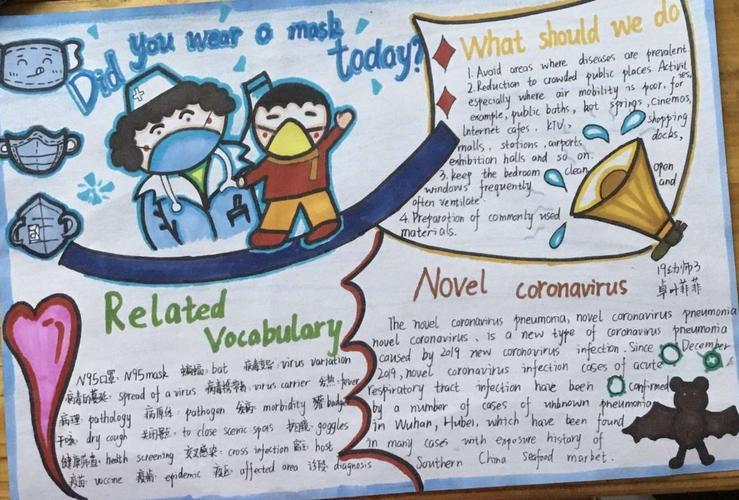 Did you wear a mask today?
What should we do
1. Avoid areas where diseases are prevalent
2. Reduction to crowded public places Activities,
especially where air mobility is poor. for
example, public baths, hot springs, Cinemas,
Internet cafes, KTV, shopping
malls, stations, airports, docks,
exhibition halls and so on.
3. keep the bedroom clean, open
windows frequently and
often ventilate.
4. Preparation of commonly used
materials.
Related
Vocabulary
N95口罩: N95mask 蝙蝠: bat 病毒变异: virus variation
病毒的蔓延: spread of a virus 病毒携带者: virus carrier 发热: fever
病理: pathology 病原体: pathogen 发病: morbidity 獾: badger
干咳: dry cough 关闭景区: to close scenic spots 护目镜: goggles
健康筛查: health screening 交叉感染: cross infection 宿主: host
疫苗: vaccine 疫情: epidemic 疫区: affected area 诊断: diagnosis
Novel coronavirus
19幼师3
卓叶菲菲
The novel coronavirus pneumonia, novel coronavirus pneumonia
novel coronavirus, is a new type of coronavirus pneumonia
caused by 2019 new coronavirus infection. Since December
2019, novel coronavirus infection cases of acute
respiratory tract infection have been confirmed
by a number of cases of unknown pneumonia
in Wuhan, Hubei, which have been found
in many cases with exposure history of
Southern China Seafood market.